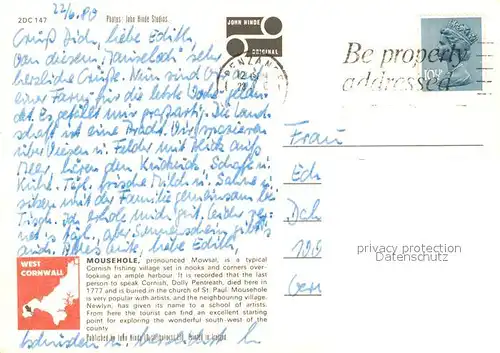 2DC 147
22/6.80
Photos: John Hinde Studios.
JOHN HINDE
ORIGINAL
PENZANCE
Be properly
addressed
10½P
Grüß Dich, liebe Edith,
von diesem "Mauseloch" sehr
herzliche Grüße. Nun sind
einer Farm für die letzte Woche gelan-
det. Es gefällt mir großartig. Die Land-
schaft ist eine Pracht. Wir spazieren
über Wiesen u. Felder mit Blick aufs
Meer, hören den Kuckuck, Schafe u.
Kühe. Tägl. frische Milch u. Sahne u.
sitzen mit der Familie gemeinsam bei
Tisch. Ich erhole mich gut, leider reg-
net's tägl. aber Sonnenschein gibt's
auch. liebe Edith,
Frau
Ed
Dah
Ger
privacy protection
Datenschutz
WEST
CORNWALL
MOUSEHOLE, pronounced Mowsal, is a typical
Cornish fishing village set in nooks and corners over-
looking an ample harbour. It is recorded that the last
person to speak Cornish, Dolly Pentreath, died here in
1777 and is buried in the church of St. Paul. Mousehole
is very popular with artists, and the neighbouring village,
Newlyn, has given its name to a school of artists.
From here the tourist can find an excellent starting
point for exploring the wonderful south-west of the
county.
Published by John Hinde Printed in Ireland